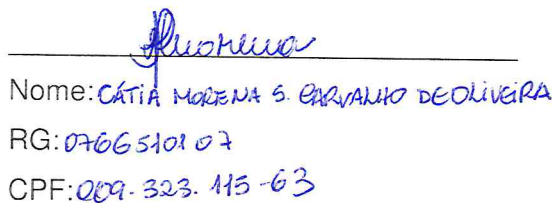 Amorena
Nome: CÁTIA MORENA S. CARVALHO DE OLIVEIRA
RG: 0766510107
CPF: 009.323.115-63